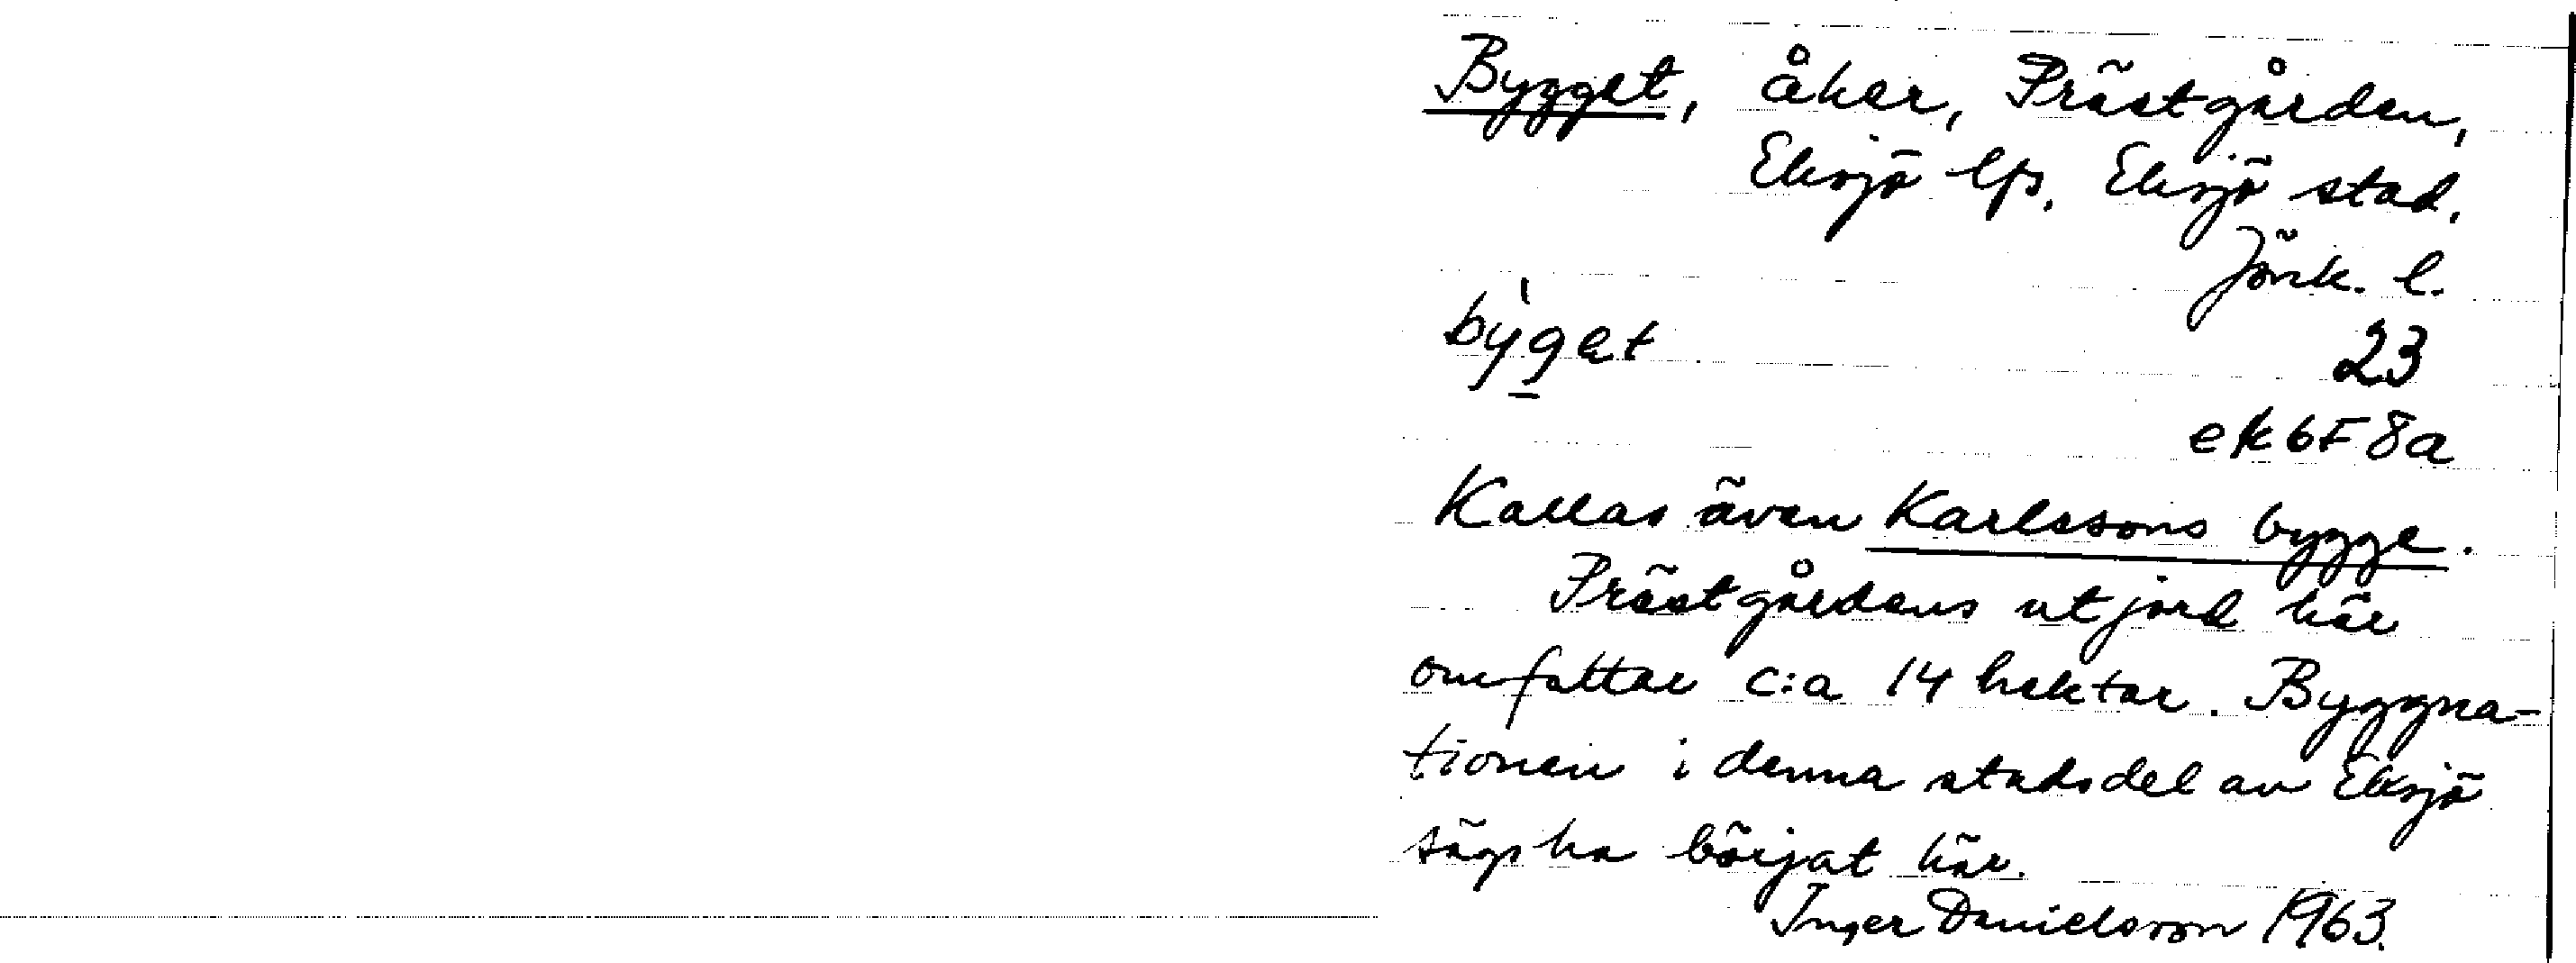 Bygget, åker, Prästgården,
Eksjö lfs, Eksjö stad,
Jönk. l.
by̍g̱et 23
ek 6F 8a
Kallas även Karlssons bygge.
Prästgårdens utjord här
omfattar c:a 14 hektar. Byggna-
tionen i denna stadsdel av Eksjö
sägs ha börjat här.
Inger Danielsson 1963.